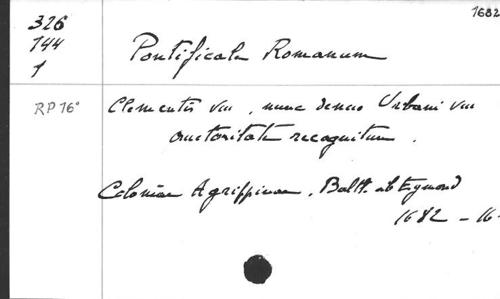 1682
326
744
1
Pontificale Romanum
RP 16°
Clementis VIII, nunc denuo Urbani VIII
auctoritate recognitum.
Coloniae Agrippinae, Balth. ab Egmond
1682 - 16